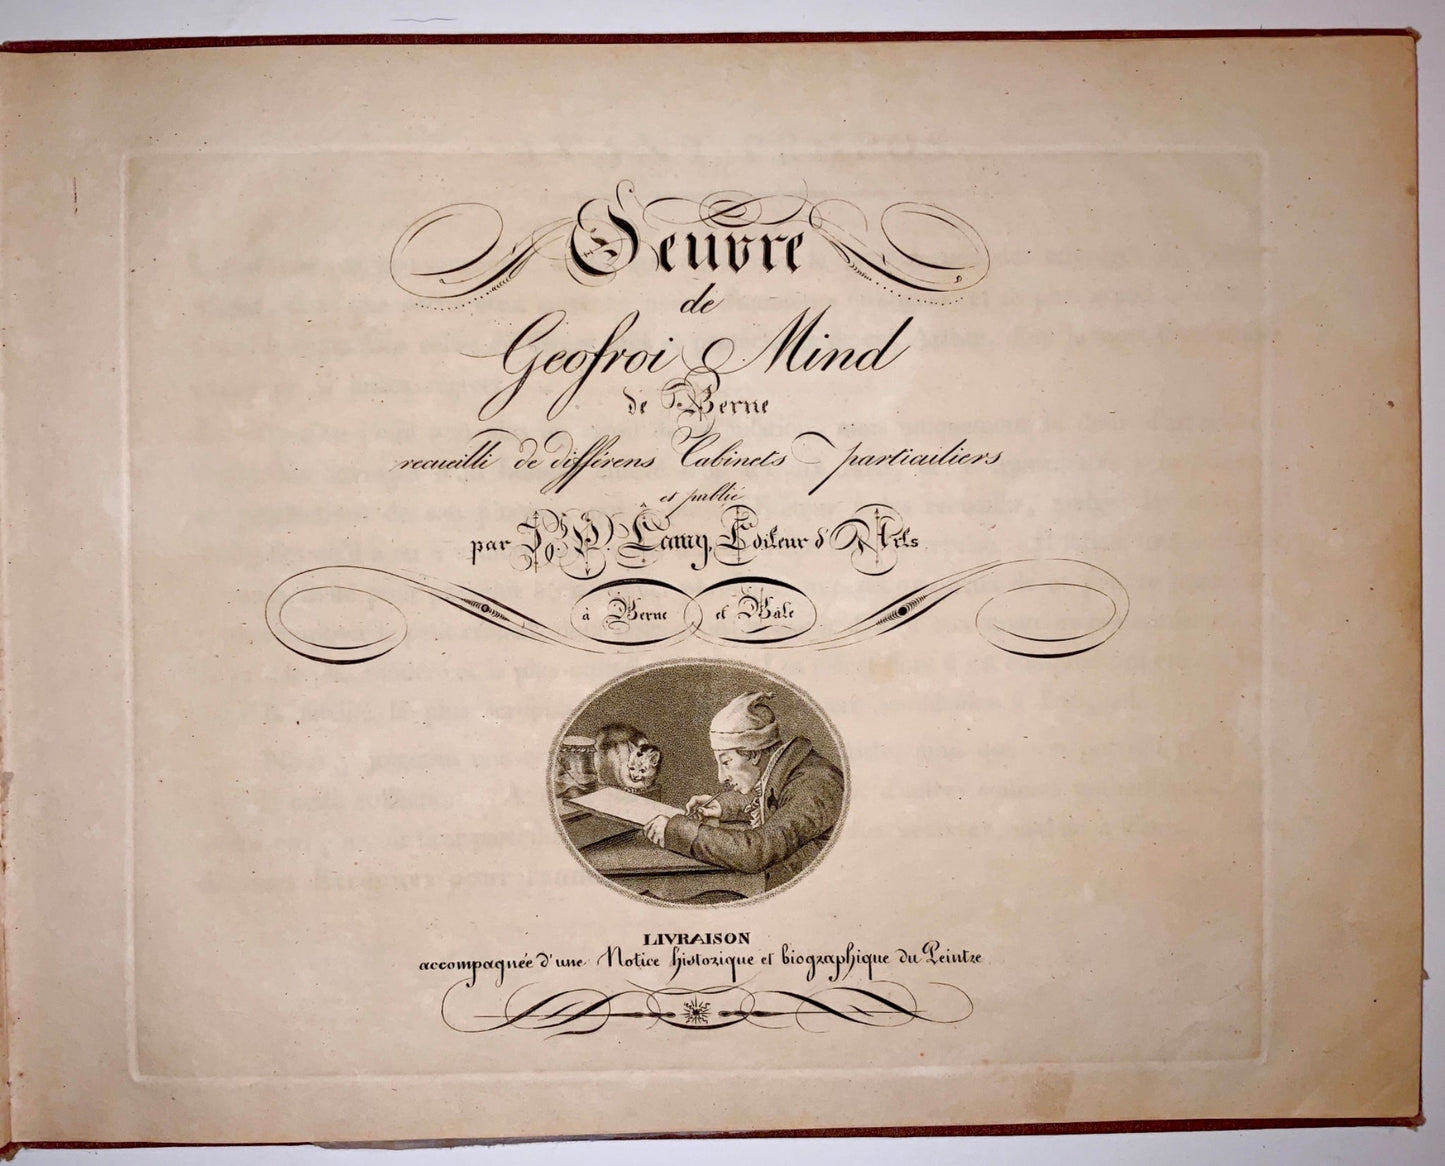 Oeuvre
de
Geofroi Mind
de Berne
recueilli de différens Cabinets particuiliers
et publié
par J. P. Lamy, Editeur d'Arts
à Berne et Bâle
LIVRAISON
accompagnée d'une Notice historique et biographique du Peintre